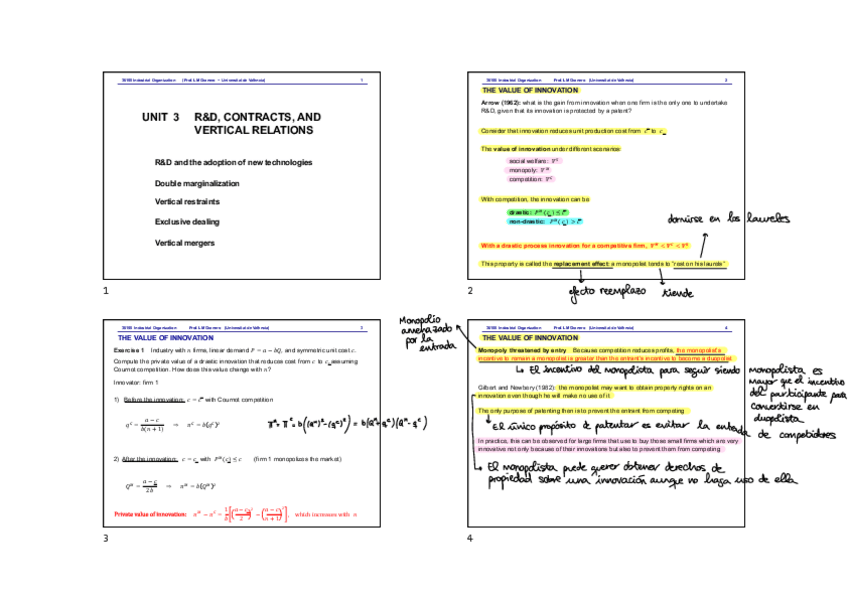 35935 Industrial Organization (Prof. I. M Ocerero – Universitat de València) 1
UNIT 3 R&D, CONTRACTS, AND
VERTICAL RELATIONS
R&D and the adoption of new technologies
Double marginalization
Vertical restraints
Exclusive dealing
Vertical mergers
1
Industrial Organization (Universitat de València) 2
THE VALUE OF INNOVATION
Arrow (1962): what is the gain from innovation when one firm is the only one to undertake
R&D, given that its innovation is protected by a patent?
Consider that innovation reduces unit production cost from c̄ to c̲
The value of innovation under different scenarios:
social welfare: Vˢ
monopoly: Vᵐ
competition: Vᶜ
With competition, the innovation can be
drastic: Pᵐ(c̲) ≤ c̄
non-drastic: Pᵐ(c̲) > c̄
dormirse en los laureles
With a drastic process innovation for a competitive firm, Vᵐ < Vᶜ < Vˢ
This property is called the replacement effect: a monopolist tends to "rest on his laurels"
efecto reemplazo tiende
2
Industrial Organization (Universitat de València) 3
THE VALUE OF INNOVATION
Exercise 1 Industry with n firms, linear demand P = a – bQ, and symmetric unit cost c.
Compute the private value of a drastic innovation that reduces cost from c̄ to c̲ assuming
Cournot competition. How does this value change with n?
Innovator: firm 1
1) Before the innovation: c = c̄ with Cournot competition
qᶜ = (a – c̄)/(b(n + 1)) ⇒ πᶜ = b(qᶜ)²
πᵐ - πᶜ = b((Qᵐ)² - (qᶜ)²) = b(Qᵐ + qᶜ)(Qᵐ - qᶜ)
2) After the innovation: c = c̲ with Pᵐ(c̲) ≤ c̄ (firm 1 monopolizes the market)
Qᵐ = (a – c̲)/2b ⇒ πᵐ = b(Qᵐ)²
Private value of innovation: πᵐ – πᶜ = 1/b[((a – c̲)/2)² – ((a – c̄)/(n + 1))²], which increases with n
3
Monopolio
amenazado
por la
entrada
Industrial Organization (Universitat de València) 4
THE VALUE OF INNOVATION
Monopoly threatened by entry Because competition reduces profits, the monopolist's
incentive to remain a monopolist is greater than the entrant's incentive to become a duopolist
El incentivo del monopolista para seguir siendo monopolista es
mayor que el incentivo
del participante para
convertirse en
duopolista
Gilbert and Newbery (1982): the monopolist may want to obtain property rights on an
innovation even though he will make no use of it
The only purpose of patenting then is to prevent the entrant from competing
El único propósito de patentar es evitar la entrada
de competidores
In practice, this can be observed for large firms that use to buy those small firms which are very
innovative not only because of their innovations but also to prevent them from competing
El monopolista puede querer obtener derechos de
propiedad sobre una innovación aunque no haga uso de ella
4